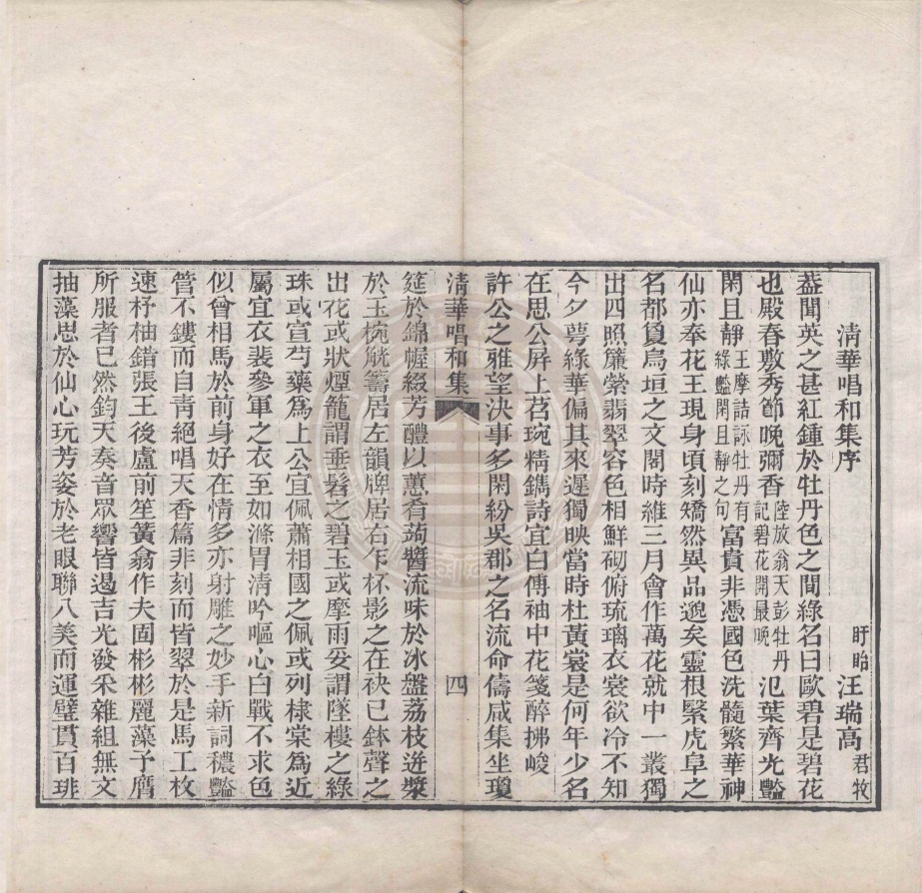 清華唱和集序
盱眙汪瑞高君牧
葢聞英之甚紅鍾於牡丹色之間綠名曰歐碧是碧花
也殿春敷秀節晚彌香陸放翁天彭牡丹記碧花開最晚氾葉齊光豔
閑且靜王摩詰詠牡丹有綠豔閑且靜之句富貴非憑國色洗髓繁華神
仙亦奉花王現身頃刻矯然異品邈矣靈根緊虎阜之
名都夐烏垣之文閣時維三月會作萬花就中一叢獨
出四照簾縈翡翠容色相鮮砌俯琉璃衣裳欲冷不知
今夕萼綠華偏其來遲獨映當時杜黃裳是何年少名
在思公屏上苕琬精鐫詩宜白傅袖中花箋醉拂峻
許公之雅望決事多閑紛吳郡之名流命儔咸集坐瓊
清華唱和集
四
筵於錦幄綴芳醴以蕙肴蒟醬流味於冰盤荔枝迸漿
於玉椀觥籌居左韻牌居右乍杯影之在袂已鉢聲之
出花或狀煙籠謂垂髫之碧玉或摩雨妥謂墜樓之綠
珠或宣芍藥爲上公宜佩蕭相國之佩或列棣棠爲近
屬宜衣裴參軍之衣至如滌胃清吟嘔心白戰不求色
似曾相馬於前身好在情多亦射雕之妙手新詞穠豔
管不鏤而自青絕唱天香篇非刻而皆翠於是馬工枚
速杼柚錯張王後盧前笙簧翕作夫固彬彬麗藻予膺
所服者已然鈞天奏音眾響皆遏吉光發采雜組無文
抽藻思於仙心玩芳姿於老眼聯八美而運璧貫百琲